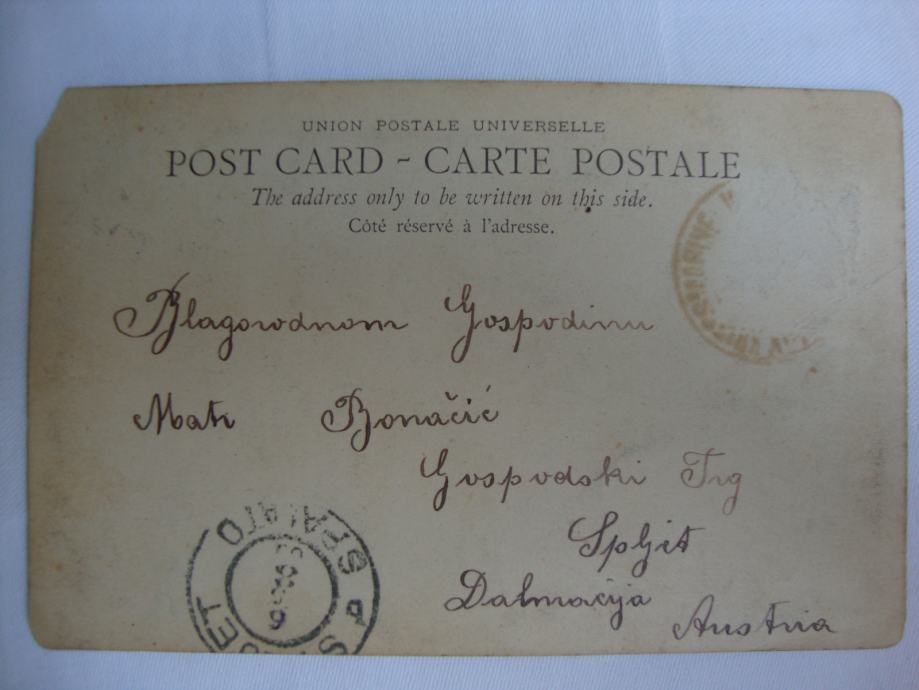 UNION POSTALE UNIVERSELLE
POST CARD - CARTE POSTALE
The address only to be written on this side.
Côté réservé à l'adresse.
Blagorodnom Gospodinu
Mati Bonačić
Gospodski Trg
Spljet
Dalmacija
Austria
SPALATO